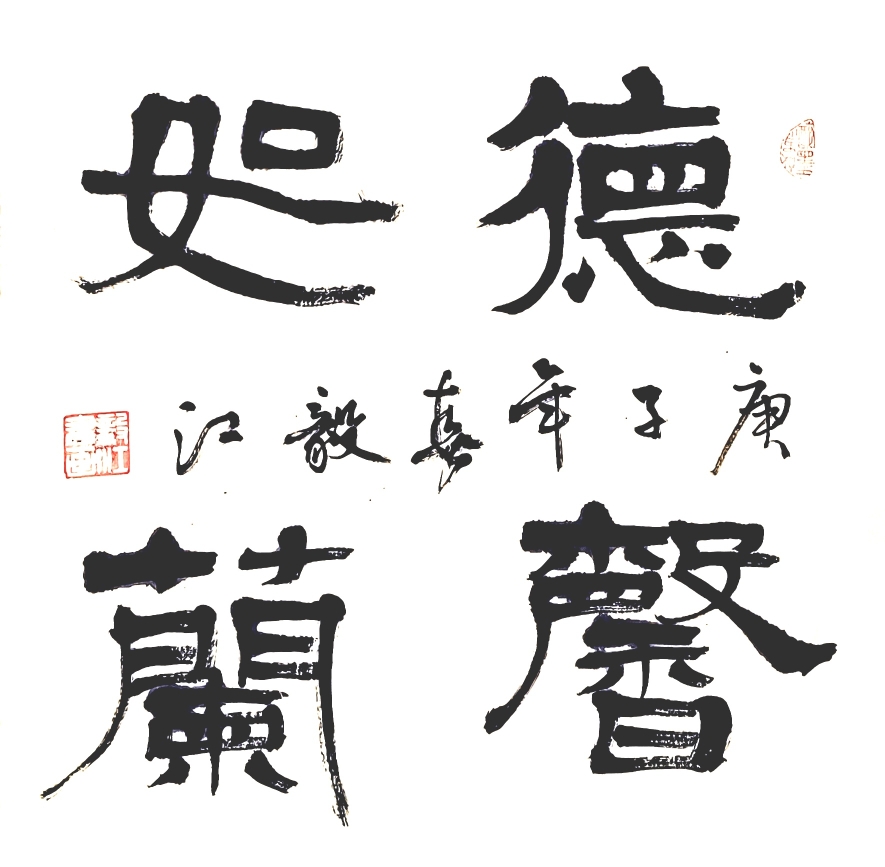 德馨
如蘭
庚子年春毅江